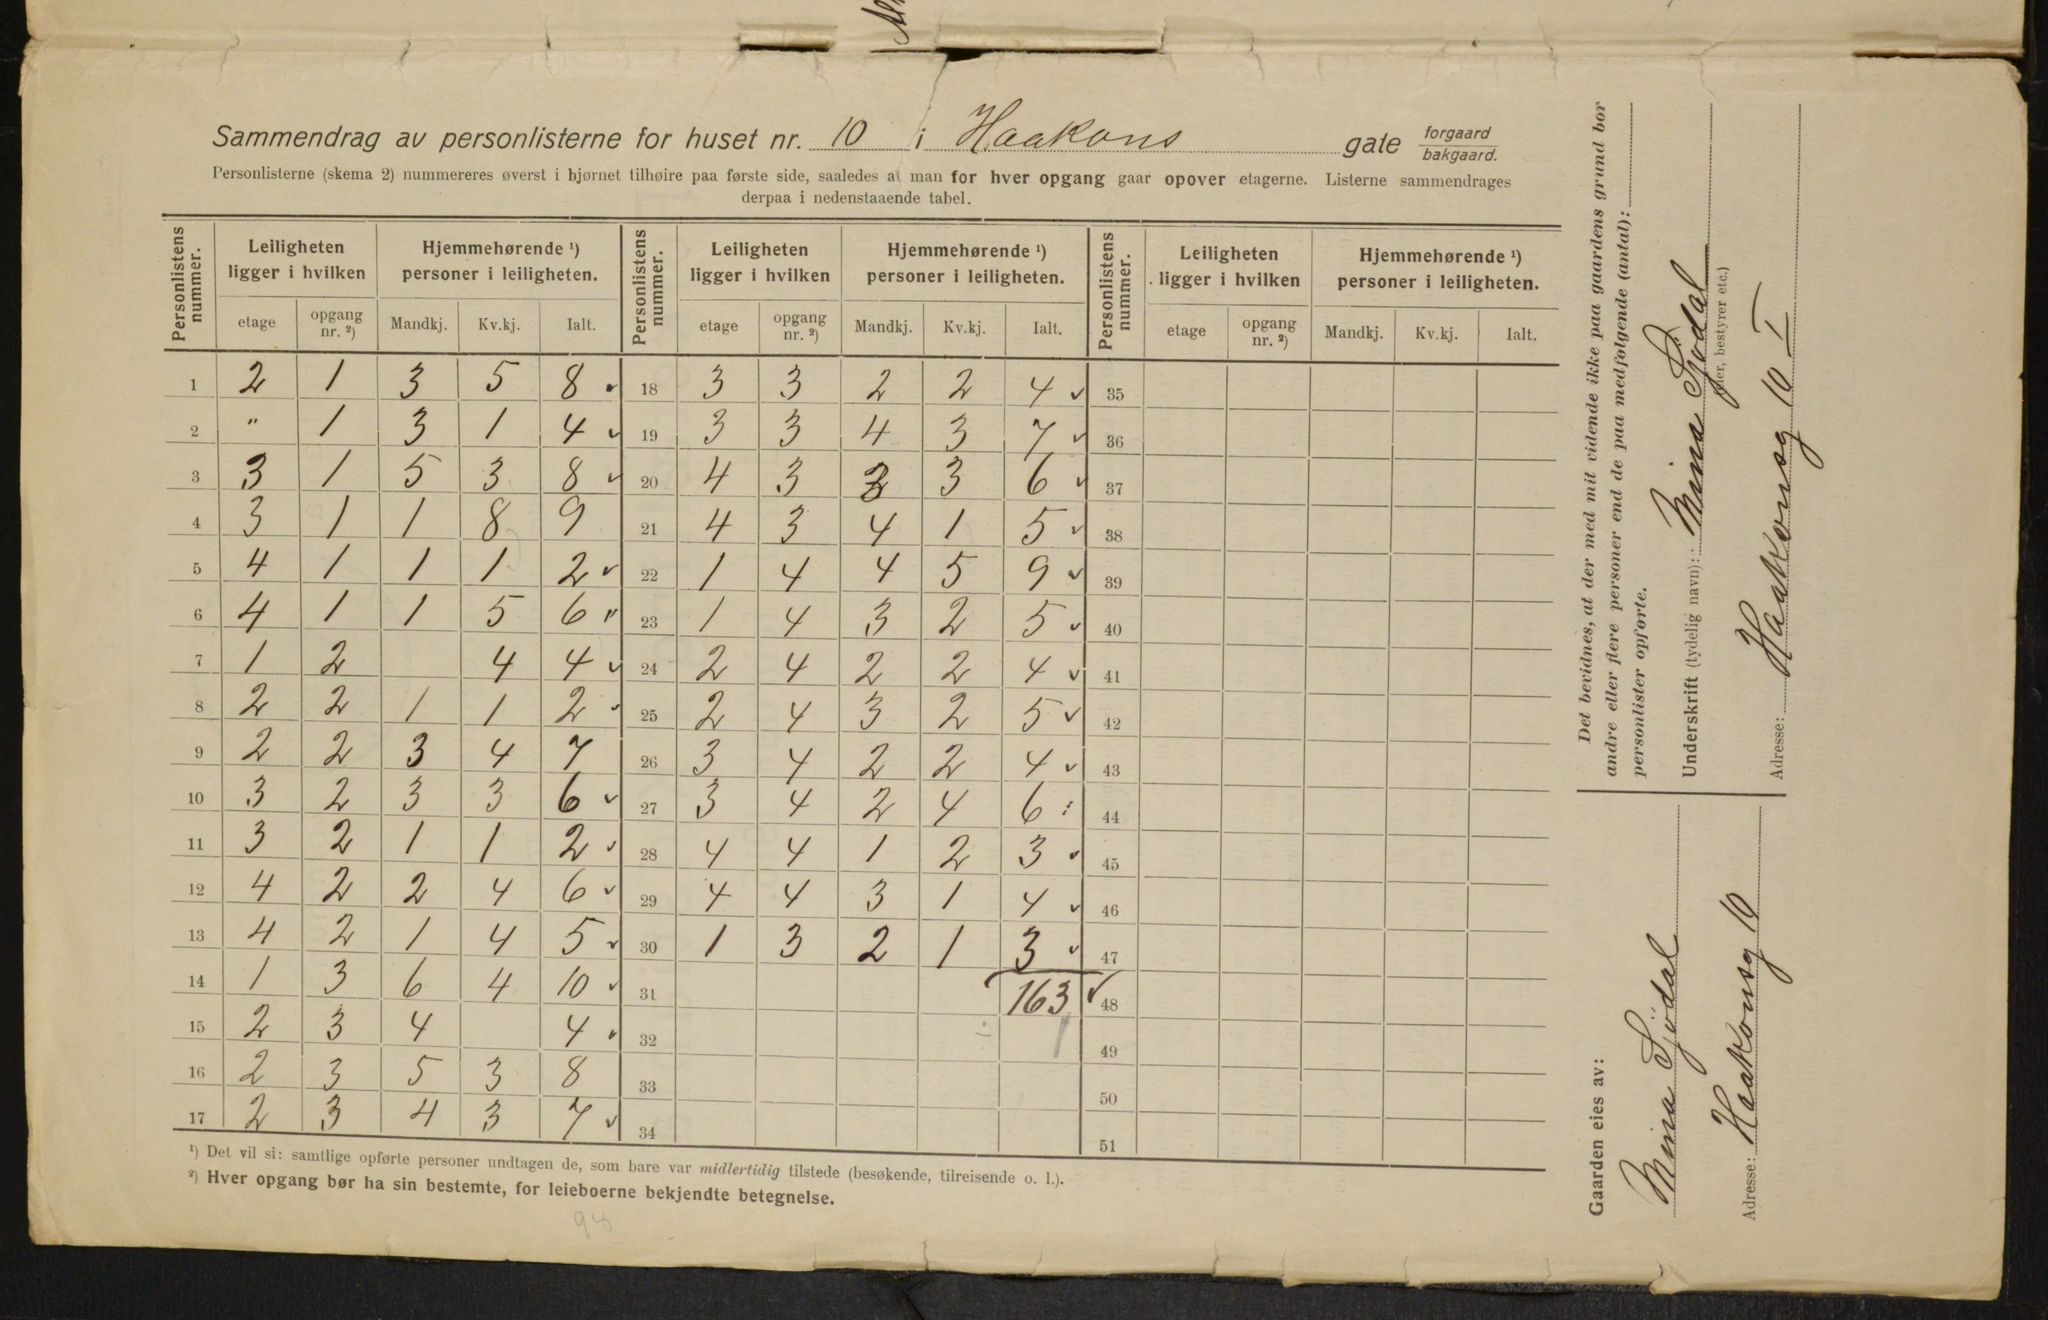 Sammendrag av personlisterne for huset nr. 10 i Haakons gate forgaard bakgaard.
Personlisterne (skema 2) nummereres øverst i hjørnet tilhøire paa første side, saaledes at man for hver opgang gaar opover etagerne. Listerne sammendrages
derpaa i nedenstaaende tabel.
Personlistens nummer. Leiligheten ligger i hvilken Hjemmehørende ¹) personer i leiligheten. Personlistens nummer. Leiligheten ligger i hvilken Hjemmehørende ¹) personer i leiligheten. Personlistens nummer. Leiligheten ligger i hvilken Hjemmehørende ¹) personer i leiligheten.
etage opgang nr. ²) Mandkj. Kv.kj. Ialt. etage opgang nr. ²) Mandkj. Kv.kj. Ialt. etage opgang nr. ²) Mandkj. Kv.kj. Ialt.
1 2 1 3 5 8 18 3 3 2 2 4 35
2 " 1 3 1 4 19 3 3 4 3 7 36
3 3 1 5 3 8 20 4 3 3 3 6 37
4 3 1 1 8 9 21 4 3 4 1 5 38
5 4 1 1 1 2 22 1 4 4 5 9 39
6 4 1 1 5 6 23 1 4 3 2 5 40
7 1 2 4 4 24 2 4 2 2 4 41
8 2 2 1 1 2 25 2 4 3 2 5 42
9 2 2 3 4 7 26 3 4 2 2 4 43
10 3 2 3 3 6 27 3 4 2 4 6 44
11 3 2 1 1 2 28 4 4 1 2 3 45
12 4 2 2 4 6 29 4 4 3 1 4 46
13 4 2 1 4 5 30 1 3 2 1 3 47
14 1 3 6 4 10 31 163 48
15 2 3 4 4 32 49
16 2 3 5 3 8 33 50
17 2 3 4 3 7 34 51
¹) Det vil si: samtlige opførte personer undtagen de, som bare var midlertidig tilstede (besøkende, tilreisende o. l.).
²) Hver opgang bør ha sin bestemte, for leieboerne bekjendte betegnelse.
98
Det bevidnes, at der med mit vidende ikke paa gaardens grund bor
andre eller flere personer end de paa medfølgende (antal):
personlister opførte.
Underskrift (tydelig navn): Mina Sjödal
eier, bestyrer etc.)
Adresse: Haakonsg 10 I
Gaarden eies av:
Mina Sjödal
Adresse: Haakonsg 10